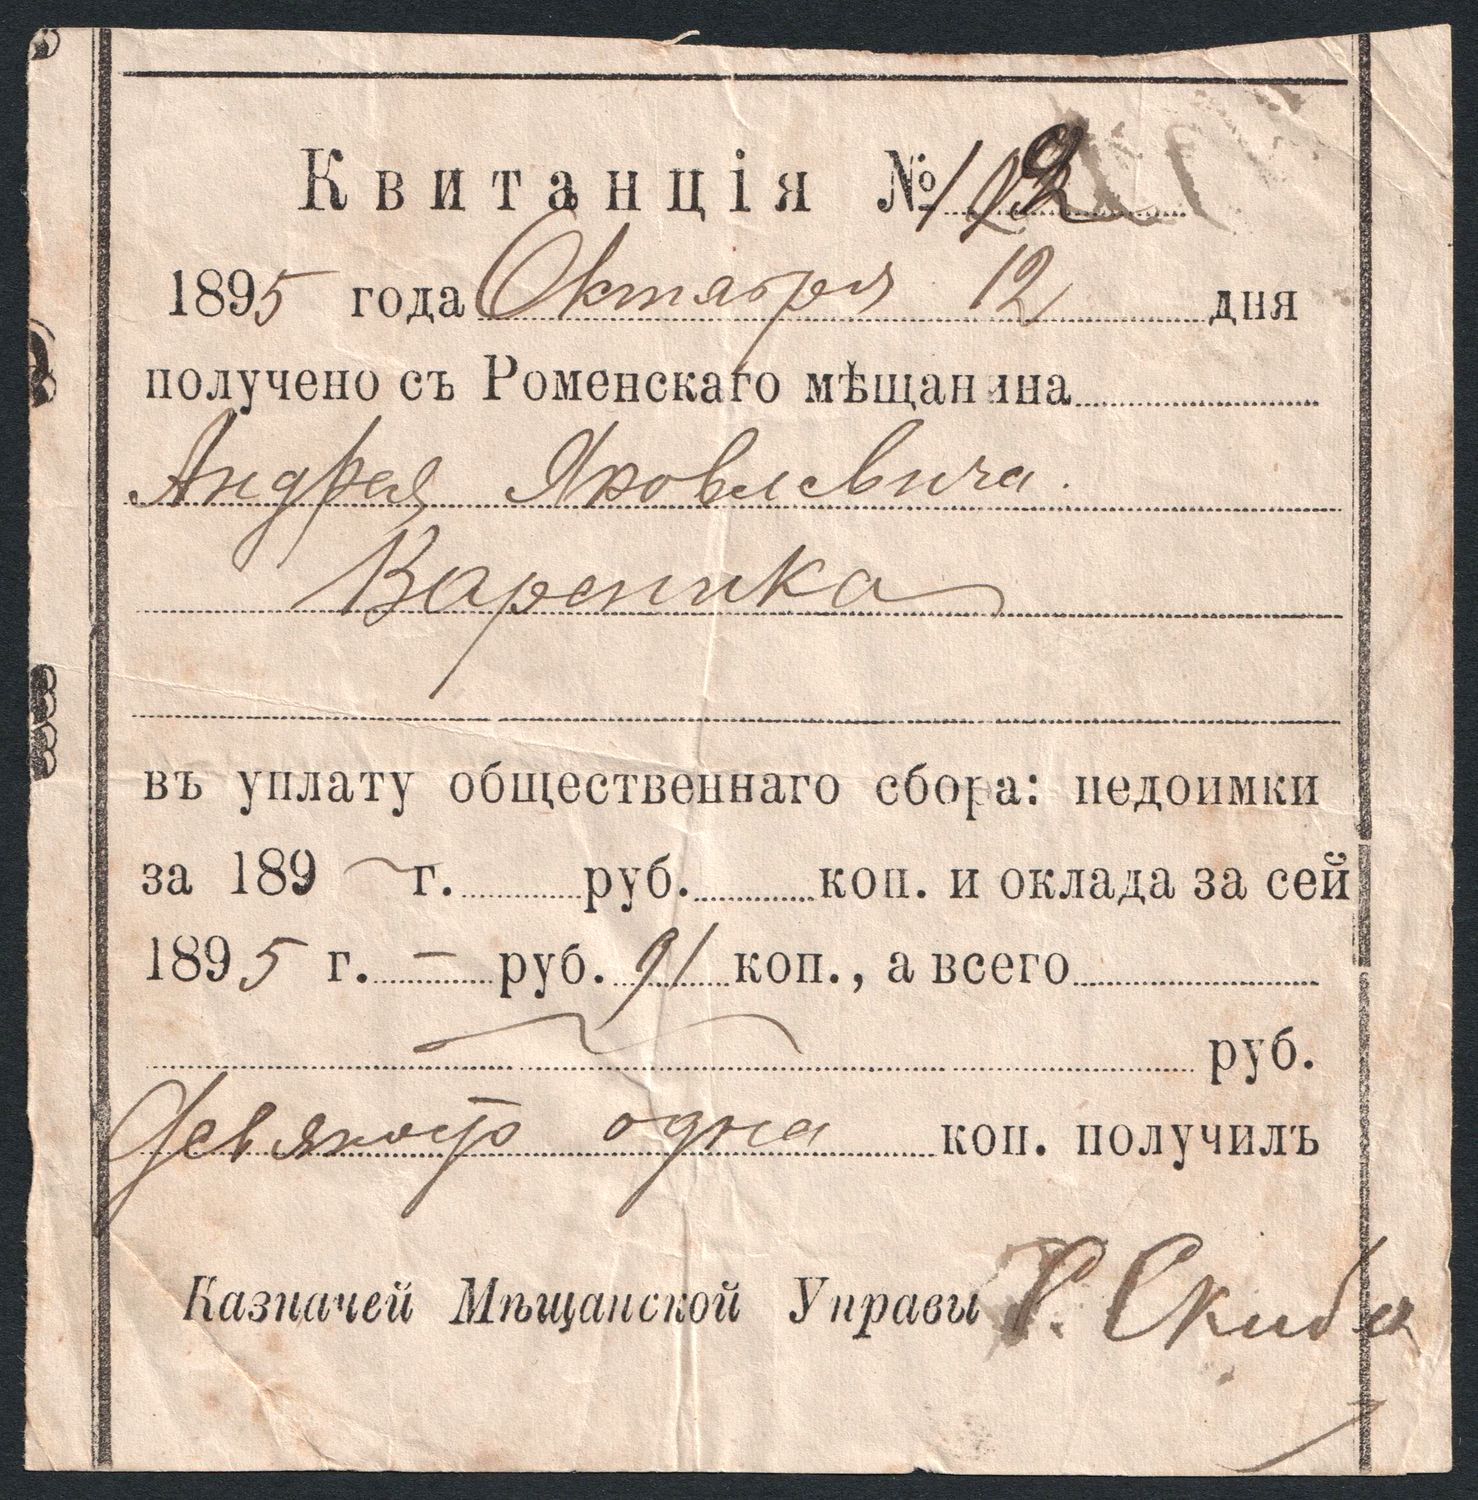 Квитанція №
1895 года Октября 12 дня
получено съ Роменскаго мѣщанина
Андрея Яковлевича
Вареника
въ уплату общественнаго сбора: недоимки
за 189 г. руб. коп. и оклада за сей
1895 г. — руб. 91 коп., а всего
руб.
Девяносто одна коп. получилъ
Казначей Мѣщанской Управы Скиба